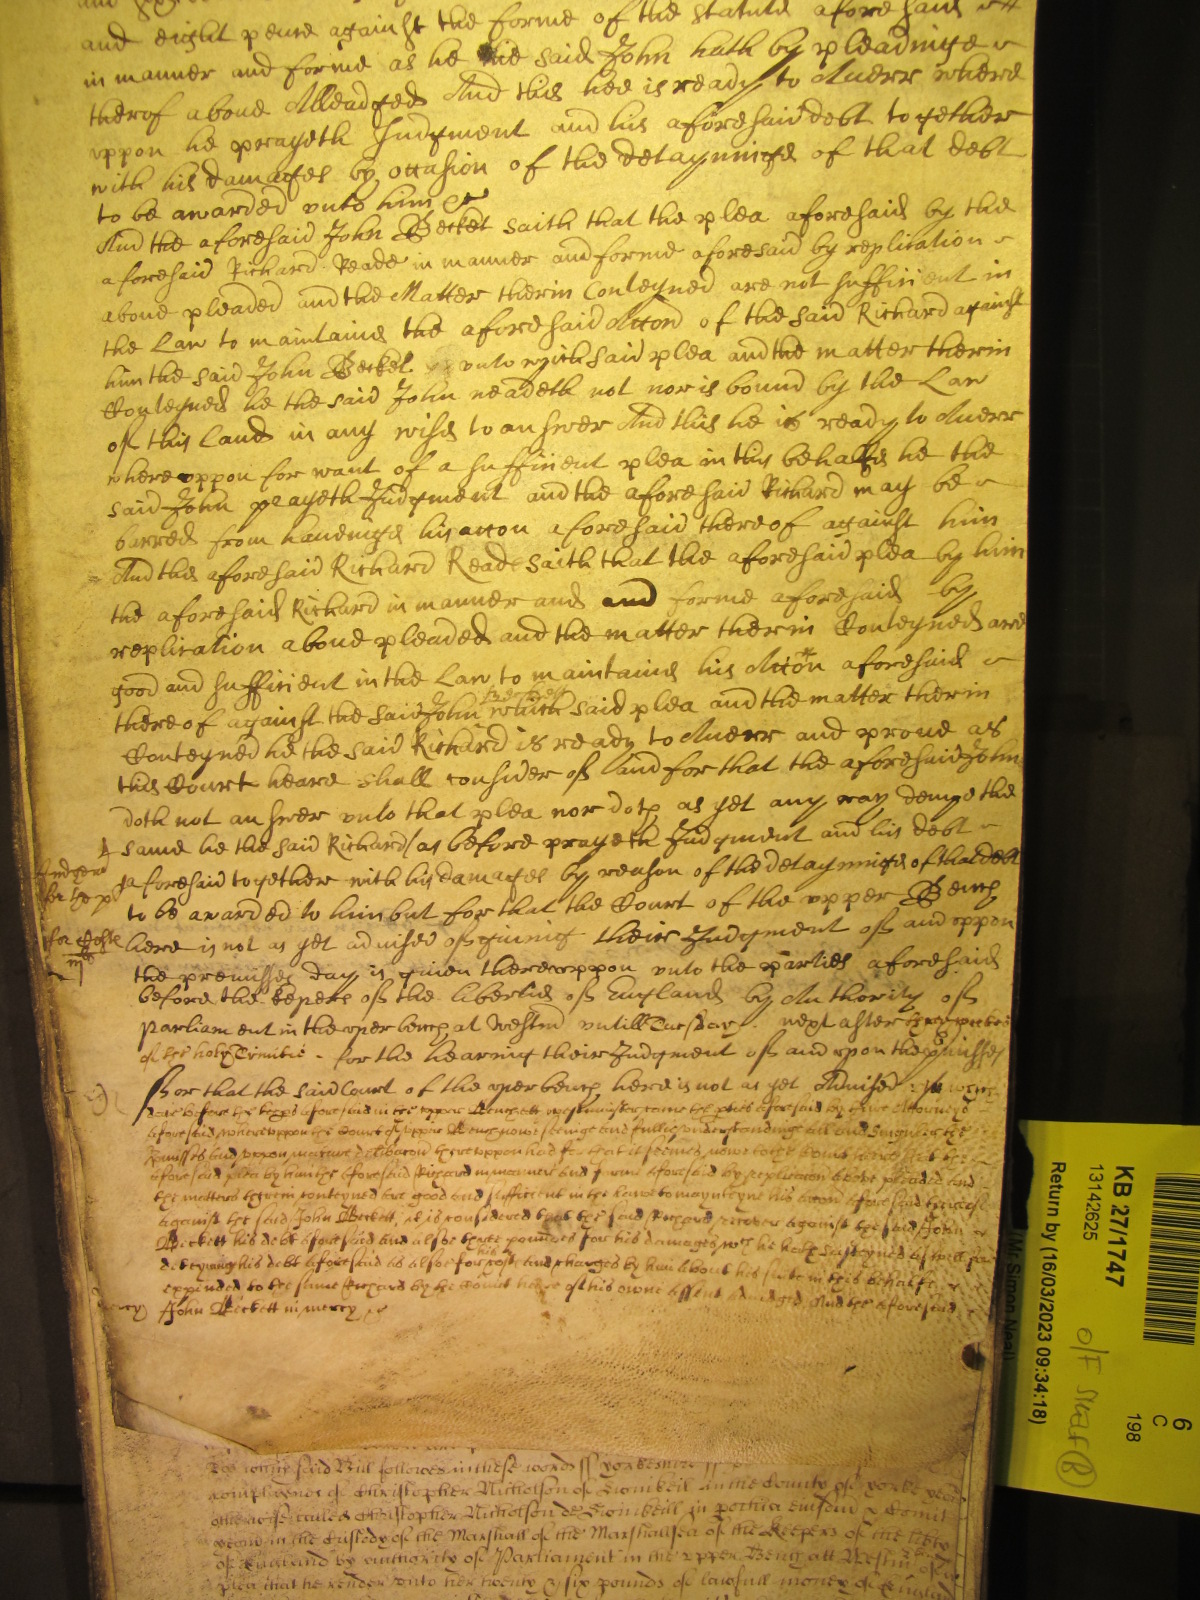 and eight pence against the forme of the statute aforesaid
in manner and forme as he the said John hath by pleadinge
therof aboue Alleadged And this hee is ready to Auerr where
vppon he prayeth Judgment and his aforesaid debt together
with his damages by occasion of the detayninge of that debt
to be awarded vnto him &c
And the aforesaid John Becket saith that the plea aforesaid by the
aforesaid Richard Reade in manner and forme aforesaid by replication
aboue pleaded and the Matter therin Conteyned are not sufficient in
the Law to maintaine the aforesaid Accon of the said Richard against
him the said John Becket vnto wich said plea and the matter therin
Conteyned he the said John neadeth not nor is bound by the Law
of this Land in any wise to answer And this he is ready to Auerr
whereuppon for want of a sufficient plea in this behalfe he the
said John prayeth Judgment and the aforesaid Richard may be
barred from haueinge his accon aforesaid thereof against him
And the aforesaid Richard Reade saith that the aforesaid plea by him
the aforesaid Richard in manner and and forme aforesaid by
replication aboue pleaded and the matter therin Conteyned are
good and sufficient in the Law to maintaine his Accon aforesaid
thereof against the said John which said plea and the matter therin
Conteyned he the said Richard is ready to Auerr and proue as
this Court heare shall consider of And for that the aforesaid John
doth not answer vnto that plea nor doth as yet any way denye the
same he the said Richard as before prayeth Judgment and his debt
aforesaid together with his damages by reason of the detayninge of that debt
to be awarded to him but for that the Court of the vpper Bench
here is not as yet aduised of giuing their Judgment of and vppon
the premisses day is giuen therevppon vnto the parties aforesaid
before the keepers of the liberties of England by Authority of
Parliament in the vper bench at Westm vntill Tuesday next after
of the holy Trinitie for the hearing their Judgment of and vpon the premisses
For that the said Court of the vper bench here is not as yet Aduised
day before the keepers aforesaid in the vpper Bench att Westminster came the parties aforesaid by their Attorneys
aforesaid wherevppon the Court of vpper Bench now seeinge and fullie vnderstandinge all and singuler the
premisses and vppon mature deliberacon therevppon had for that it seemes
aforesaid plea by him the aforesaid Richard in manner and forme aforesaid by replicacon aboue pleaded and
the matters therein conteyned are good and sufficient in the lawe to maynteyne his accon aforesaid thereof
against the said John Beckett it is considered that the said Richard recouer against the said John
Beckett his debt aforesaid and alsoe three poundes for his damages wch he hath susteyned aswell
deteyning his debt aforesaid as alsoe for his costs and charges by him about his suite in this behalfe
expended to the same Richard by the Court here of his owne assent adiudged And the aforesaid
John Beckett in mercy &c
mercy
said Bill followes in these words ss Yorkeshire ss
complaineth of Christopher Nicholson of in the County of Yorke
otherwise called Christopher Nicholson de in Comit
in the Custody of the Marshall of the Marshallsea of the Keepers of the liberty
of England by authority of Parliament in the vpper Bench att Westm of a
plea that he render vnto her twenty & six pounds of lawfull money of England
KB 27/1747
13142625
Return by (16/03/2023 09:34:18)
Mr Simon Neal
6
C
198
O/F